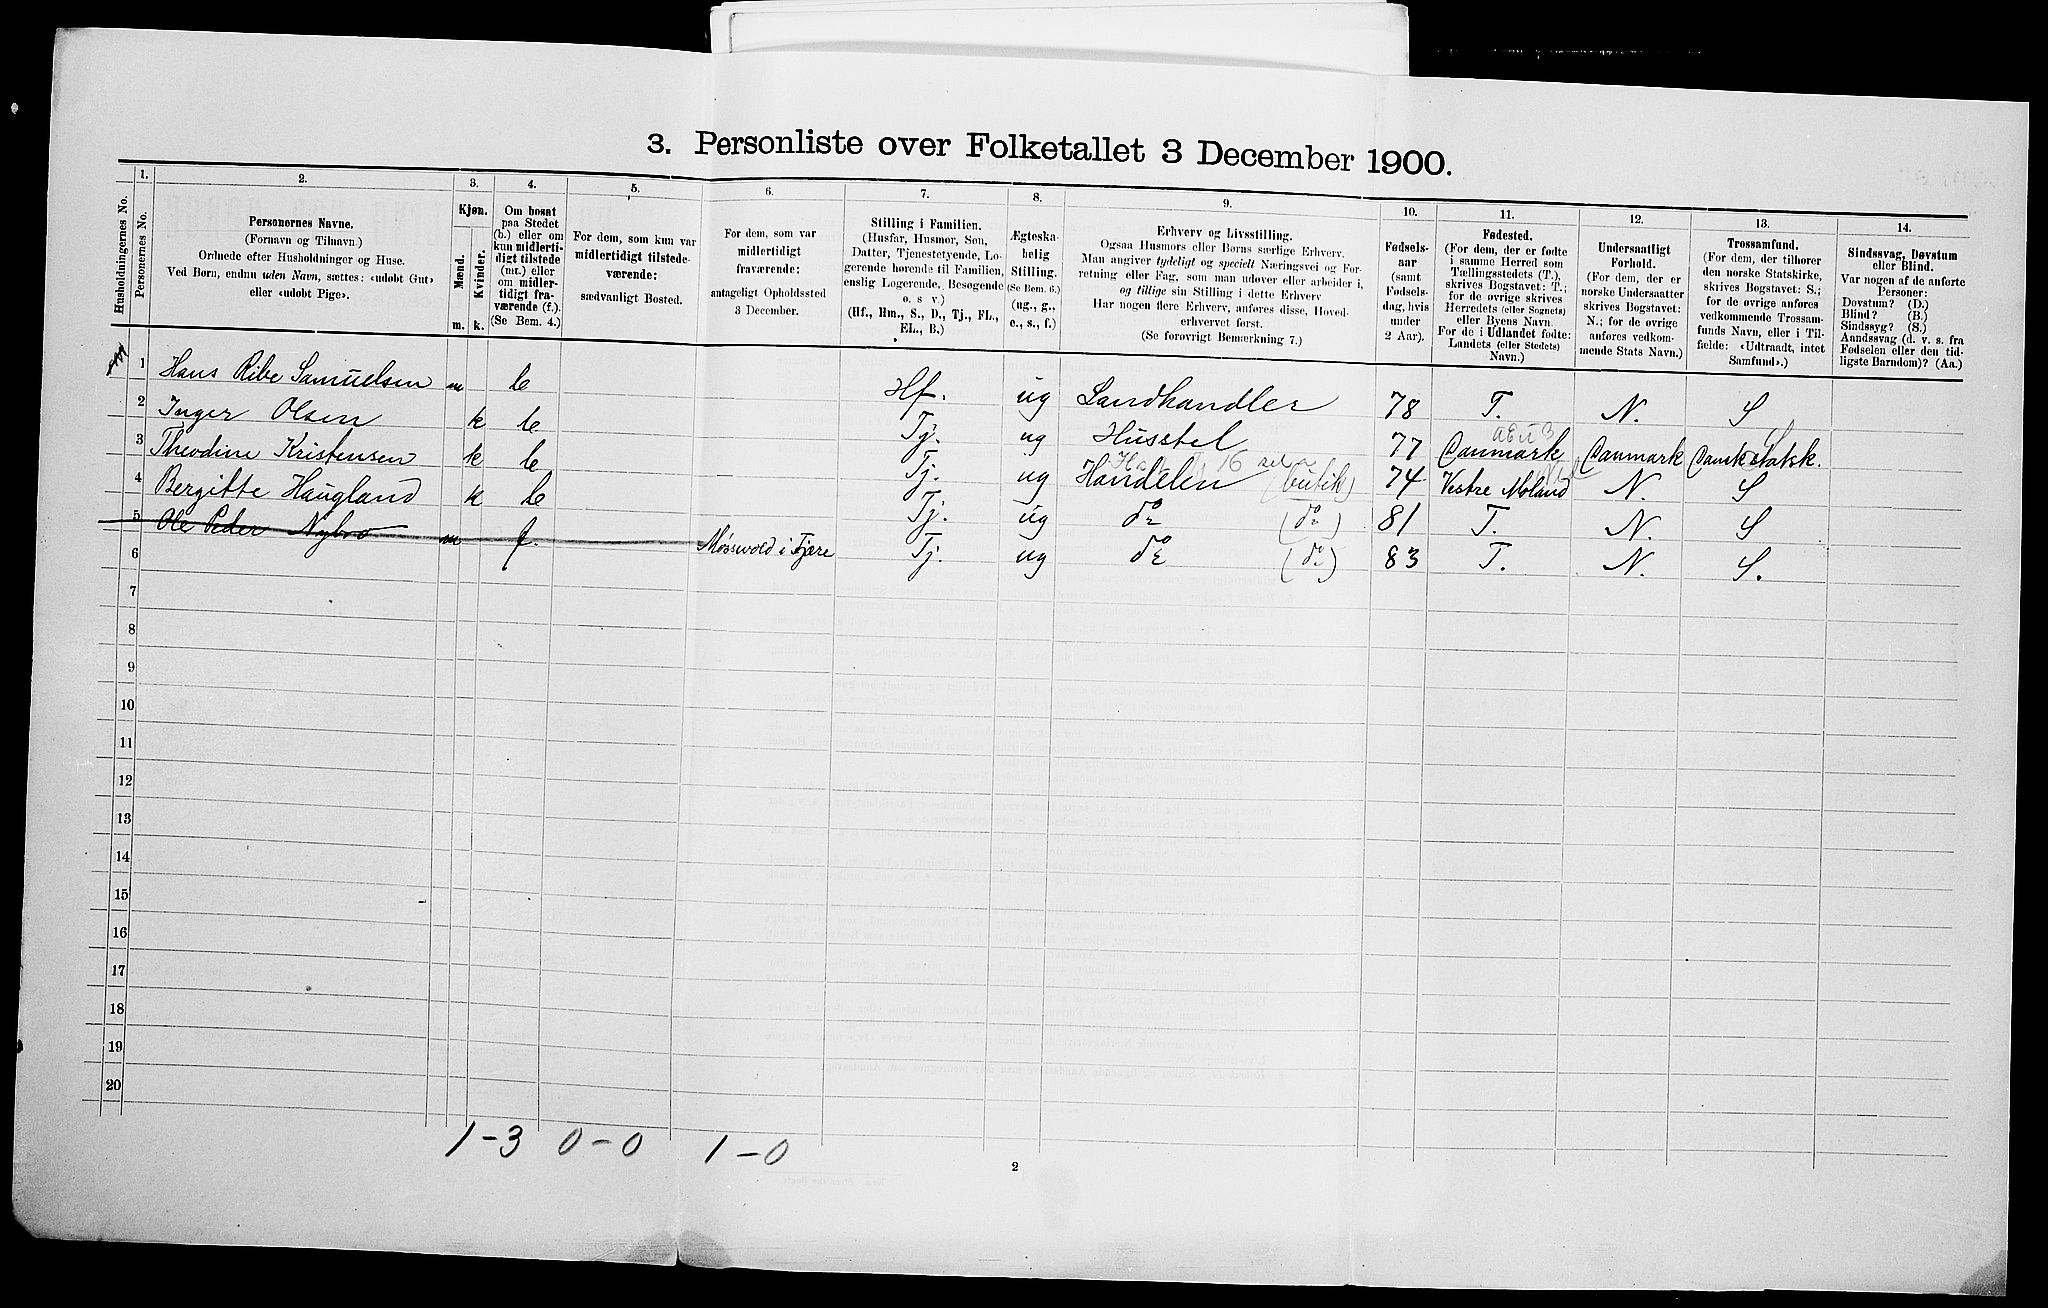 3. Personliste over Folketallet 3 December 1900.
Husholdningernes No.
1.
Personernes No.
2.
Personernes Navne.
(Fornavn og Tilnavn.)
Ordnede efter Husholdninger og Huse.
Ved Børn, endnu uden Navn, sættes: «udøbt Gut»
eller «udøbt Pige».
3.
Kjøn.
Mænd.
Kvinder.
m. k.
4.
Om bosat
paa Stedet
(b.) eller om
kun midlerti-
digt tilstede
(mt.) eller
om midler-
tidigt fra-
værende (f.).
(Se Bem. 4.)
5.
For dem, som kun var
midlertidigt tilstede-
værende:
sædvanligt Bosted.
6.
For dem, som var
midlertidigt
fraværende:
antageligt Opholdssted
3 December.
7.
Stilling i Familien.
(Husfar, Husmor, Søn,
Datter, Tjenestetyende, Lo-
gerende hørende til Familien,
enslig Logerende, Besøgende
o. s v.)
(Hf., Hm., S., D., Tj., FL.,
EL., B.)
8.
Ægteska-
belig
Stilling.
(Se Bem. 6.)
(ug., g.,
e., s., f.)
9.
Erhverv og Livsstilling.
Ogsaa Husmors eller Børns særlige Erhverv.
Man angiver tydeligt og specielt Næringsvei og For-
retning eller Fag, som man udøver eller arbeider i,
og tillige sin Stilling i dette Erhverv
Har nogen flere Erhverv, anføres disse, Hoved-
erhvervet først.
(Se forøvrigt Bemærkning 7.)
10.
Fødsels-
aar
(samt
Fødsels-
dag, hvis
under
2 Aar).
11.
Fødested.
(For dem, der er fødte
i samme Herred som
Tællingsstedets (T.),
skrives Bogstavet: T.;
for de øvrige skrives
Herredets (eller Sognets)
eller Byens Navn.
For de i Udlandet fødte:
Landets (eller Stedets)
Navn.)
12.
Undersaatligt
Forhold.
(For dem, der er
norske Undersaatter
skrives Bogstavet:
N.; for de øvrige
anføres vedkom-
mende Stats Navn.)
13.
Trossamfund.
(For dem, der tilhører
den norske Statskirke,
skrives Bogstavet: S.;
for de øvrige anføres
vedkommende Trossam-
funds Navn, eller i Til-
fælde: «Udtraadt, intet
Samfund».)
14.
Sindssvag, Døvstum
eller Blind.
Var nogen af de anførte
Personer:
Døvstum? (D.)
Blind? (B.)
Sindssyg? (S.)
Aandssvag (d. v. s. fra
Fødselen eller den tid-
ligste Barndom)? (Aa.)
1 Hans Ribe Samuelsen m b Hf. ug Landhandler 78 T. N. S
2 Inger Olsen k b Tj. ug Husstel 77 Danmark Danmark Dansk Statsk.
3 Theodine Kristensen k b Tj. ug Handelen (butik) 74 Vestre Moland N. S
4 Bergitte Haugland k b Tj. ug do (do) 81 T. N. S
5 Ole Peder Nybro m f. Mosevold i Fjære Tj. ug do (do) 83 T. N. S.
6
7
8
9
10
11
12
13
14
15
16
17
18
19
20
1-3 0-0 1-0
2